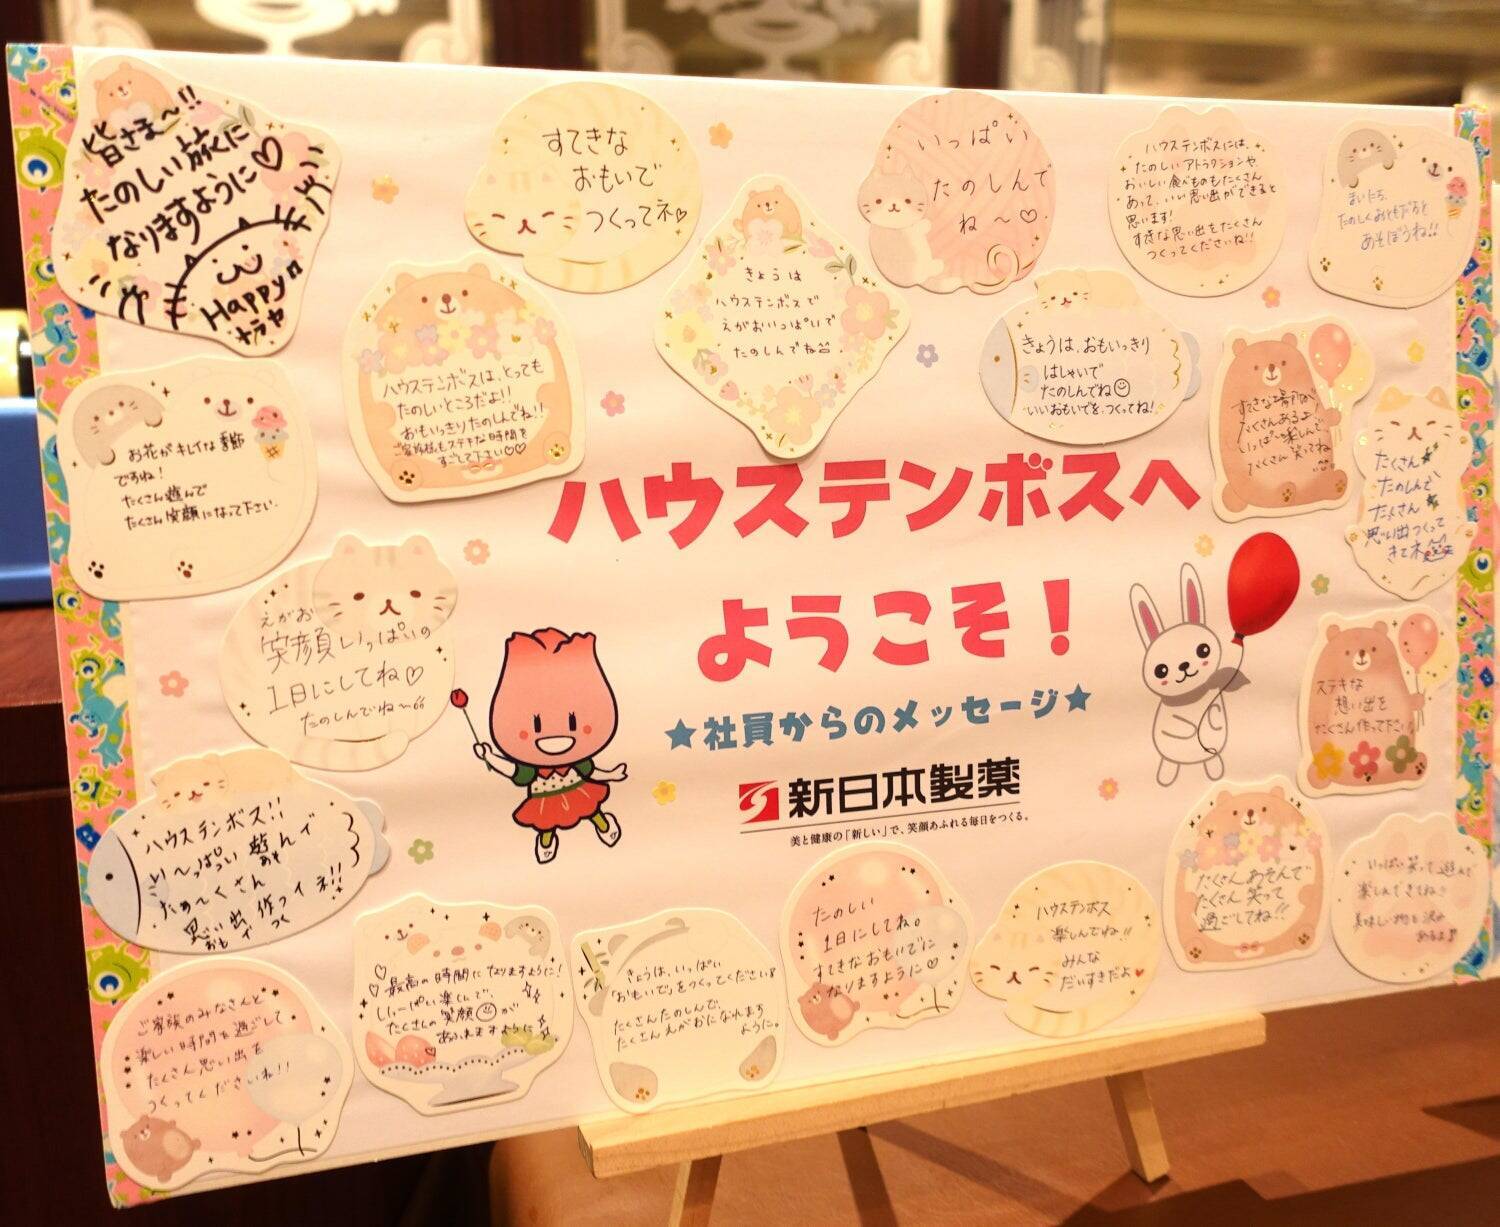 皆さま〜!!
たのしい旅に
なりますように♡
Happy
すてきな
おもいで
つくってネ♡
いっぱい
たのしんで
ね〜♡
ハウステンボスには、
たのしいアトラクションや、
おいしい食べものもたくさん
あって、いい思い出ができると
思います!
すてきな思い出をたくさん
つくってくださいね!!
たのしくおともだちと
あそぼうね!!
ハウステンボスは、とっても
たのしいところだよ!!
おもいっきりたのしんでね!!
ご家族様もステキな時間を
すごして下さい♡♡
きょうは
ハウステンボスで
えがおいっぱいで
たのしんでね
きょうは、おもいっきり
はしゃいで
たのしんでね☺
いいおもいでを、つくってね!
すてきな場所が
たくさんあるよ!
いっぱい楽しんで
たくさん笑ってね
たくさん
たのしんで
たくさん
思い出つくって
きてネ
お花がキレイな季節
ですね!
たくさん遊んで
たくさん笑顔になって下さい.
ハウステンボスへ
ようこそ!
★社員からのメッセージ★
新日本製薬
美と健康の「新しい」で、笑顔あふれる毎日をつくる。
えがお
笑顔いっぱいの
1日にしてね♡
たのしんでね〜
ステキな
想い出を
たくさん作って下さい
ハウステンボス!!
い〜っぱい遊んで
あそ
たぁ〜くさん
思い出作ってネ!!
おも で つく
最高の時間になりますように!
いっぱい楽しんで、
たくさんの笑顔☺が
あふれますように
きょうは、いっぱい
「おもいで」をつくってください♪
たくさんたのしんで、
たくさんえがおになれます
ように。
たのしい
1日にしてね。
すてきなおもいでに
なりますように♡
ハウステンボス
楽しんでね!!
みんな
だいすきだよ♥
たくさんあそんで
たくさん笑って
過ごしてね!!
いっぱい笑って遊んで
楽しんできてね
美味しい物も沢山
あるよ
ご家族のみなさんと
楽しい時間を過ごして
たくさん思い出を
つくってくださいね!!